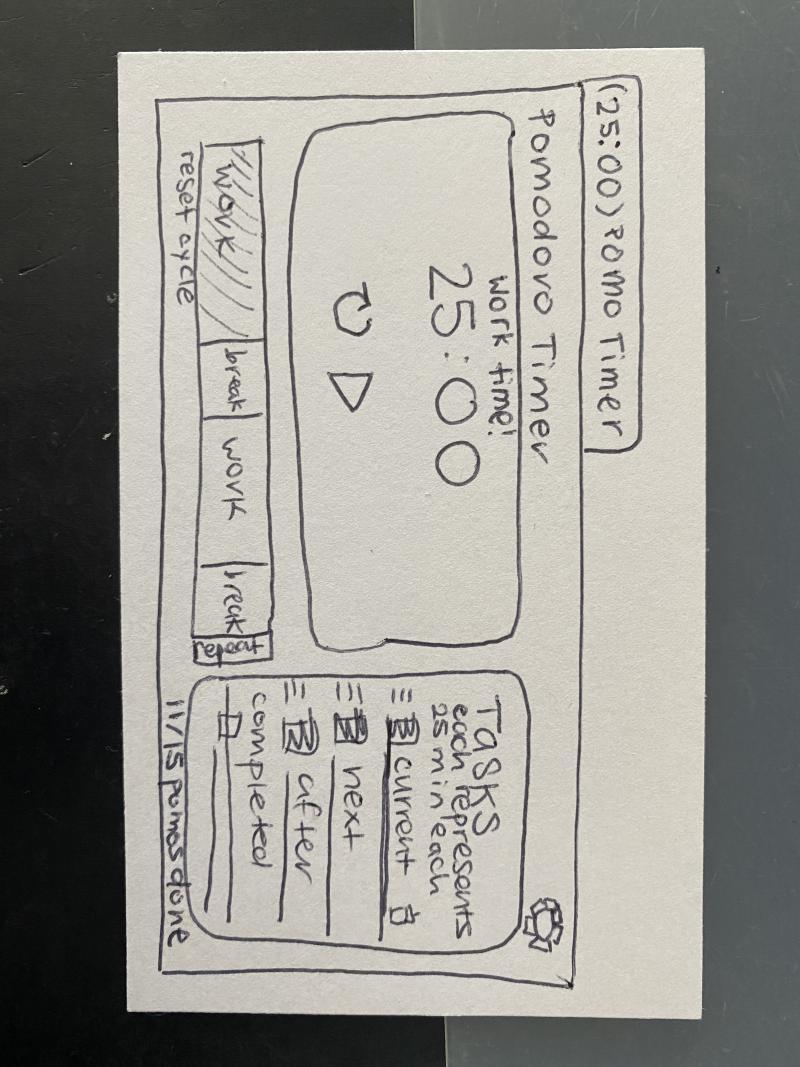 (25:00) Pomo Timer
Pomodoro Timer
work time!
25:00
work
break
work
break
repeat
reset cycle
Tasks
each represents
25 min each
current
next
after
completed
11/15 pomos done